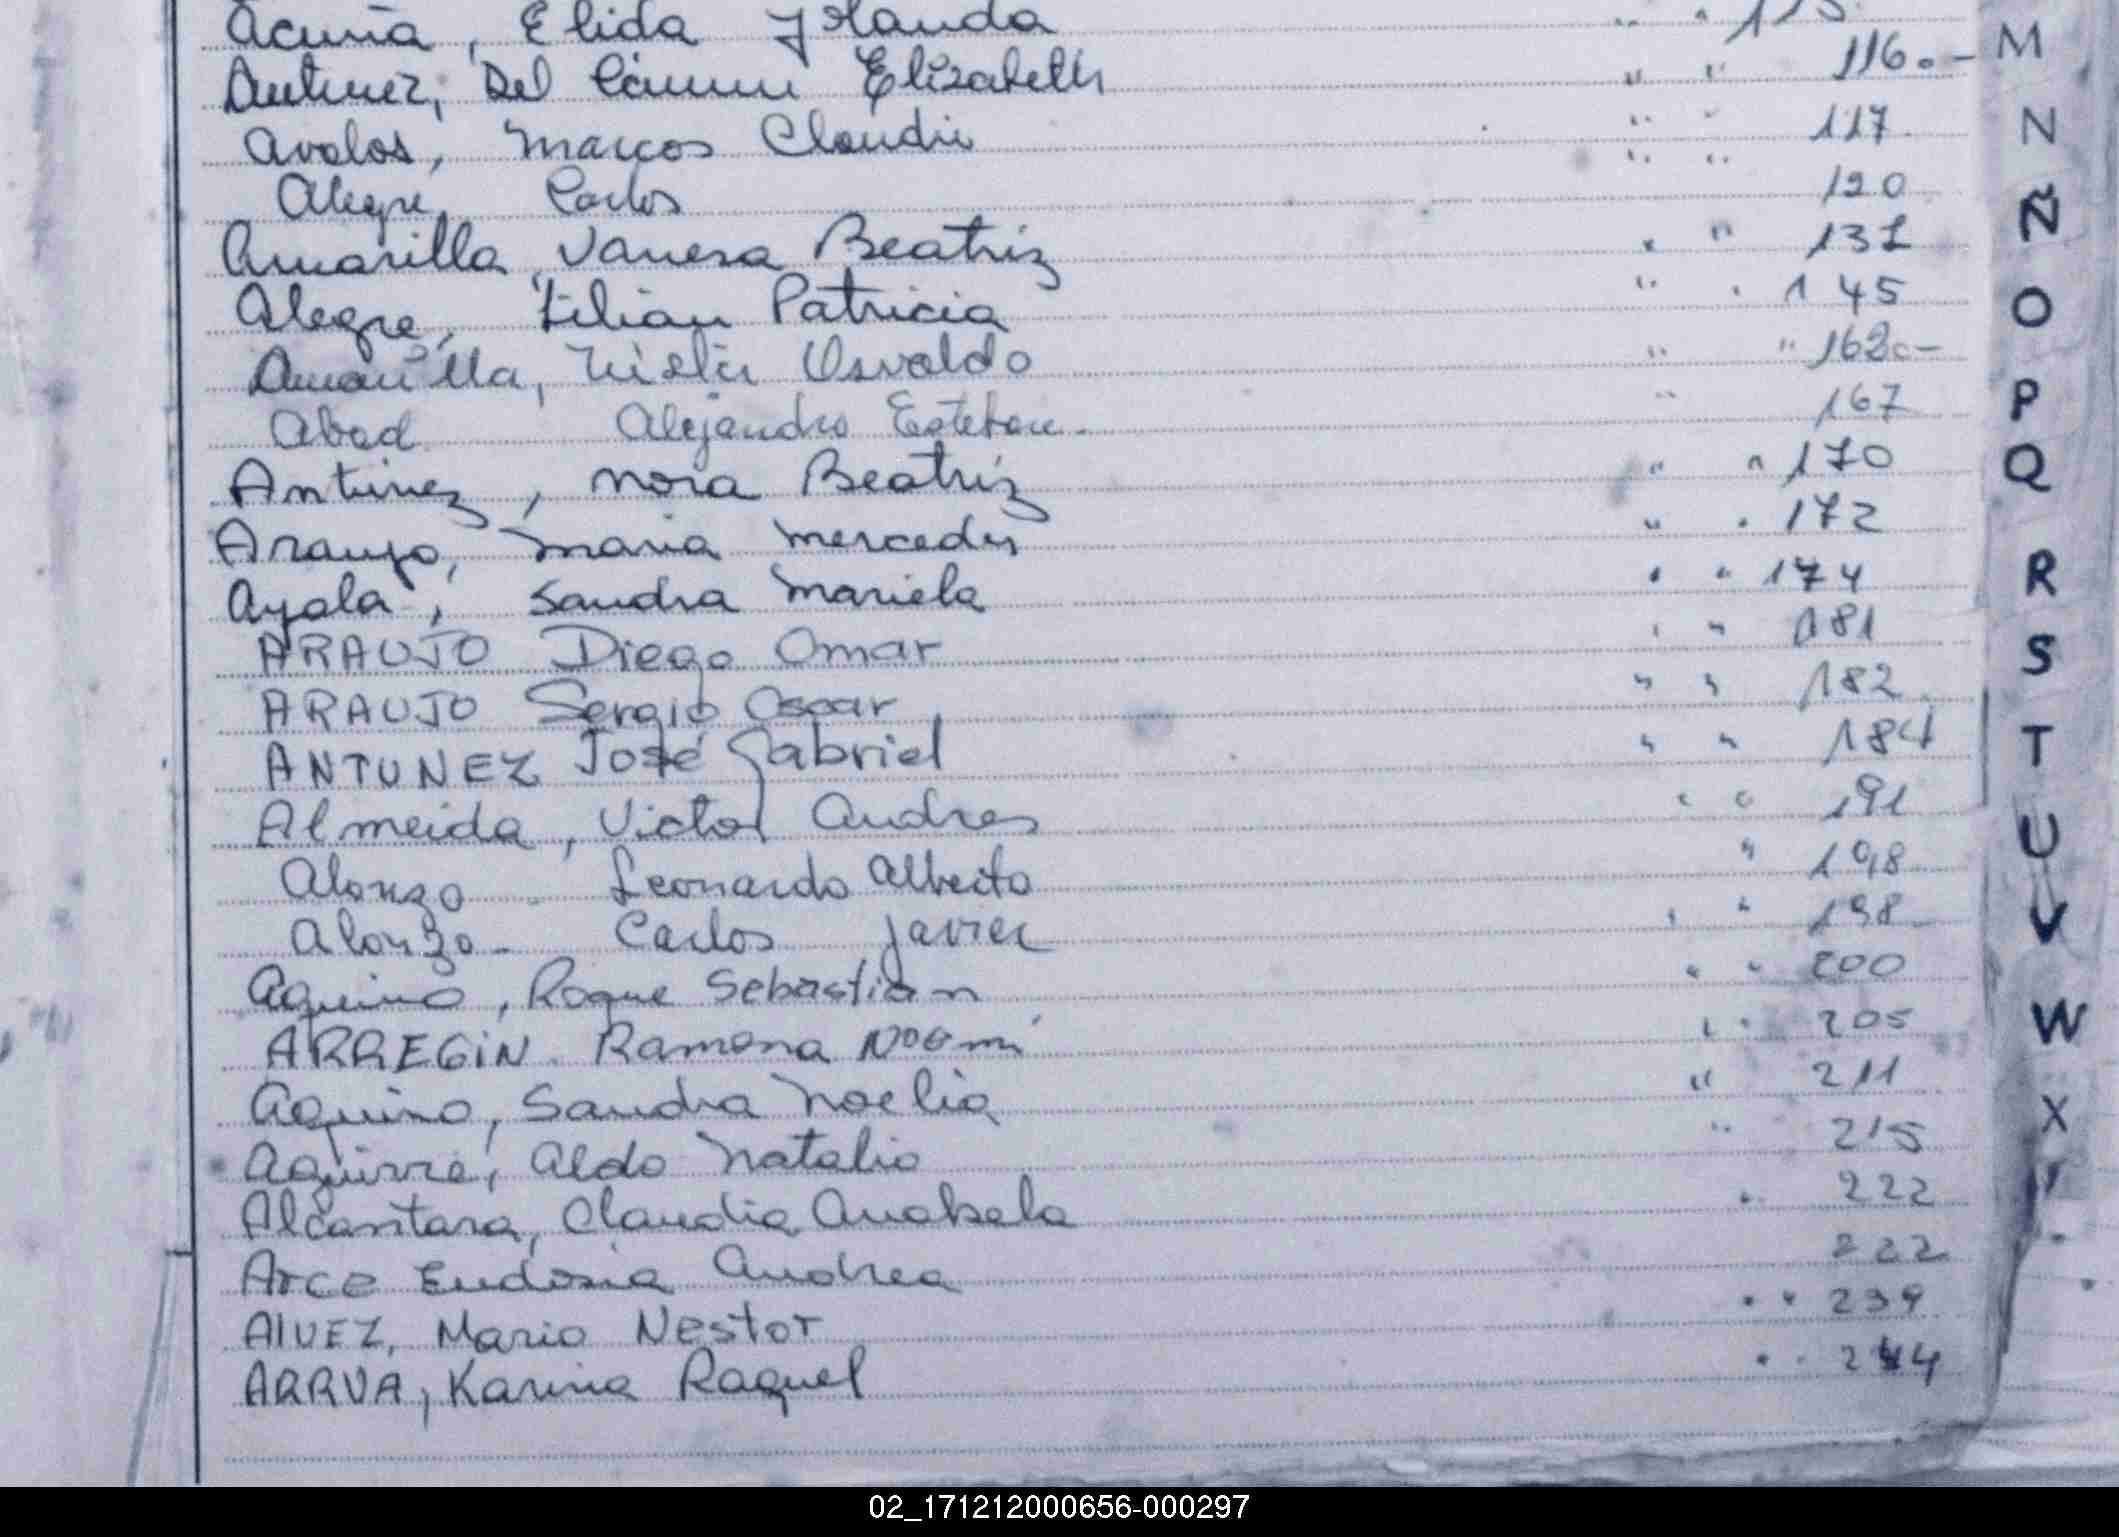 Acuña, Elida Yolanda " " 115
Antunez, Del Carmen Elizabeth " " 116.-
Avalos, Marcos Claudio " " 117
Alegre, Carlos " " 120
Amarilla, Vanesa Beatriz " " 131
Alegre, Lilian Patricia " " 145
Amarilla, Osvaldo " " 162.-
Abad Alejandro Esteban " 167
Antunez, Nora Beatriz " " 170
Araujo, Maria Mercedes " " 172
Ayala, Sandra Mariela " " 174
ARAUJO Diego Omar " " 181
ARAUJO Sergio Oscar " " 182
ANTUNEZ José Gabriel " " 184
Almeida, Victor Andres " " 191
Alonzo Leonardo Alberto " 198
Alonzo - Carlos Javier " " 198
Aquino, Roque Sebastian " " 200
ARREGIN Ramona Noemí " " 205
Aquino, Sandra Noelia " 211
Aguirre, Aldo Natalio " 215
Alcantara, Claudia Anabela " 222
Arce Eudosia Andrea 222
AlVEZ, Mario Nestor " " 239
ARRUA, Karina Raquel " " 244
M
N
Ñ
O
P
Q
R
S
T
U
V
W
X
Y
02_171212000656-000297